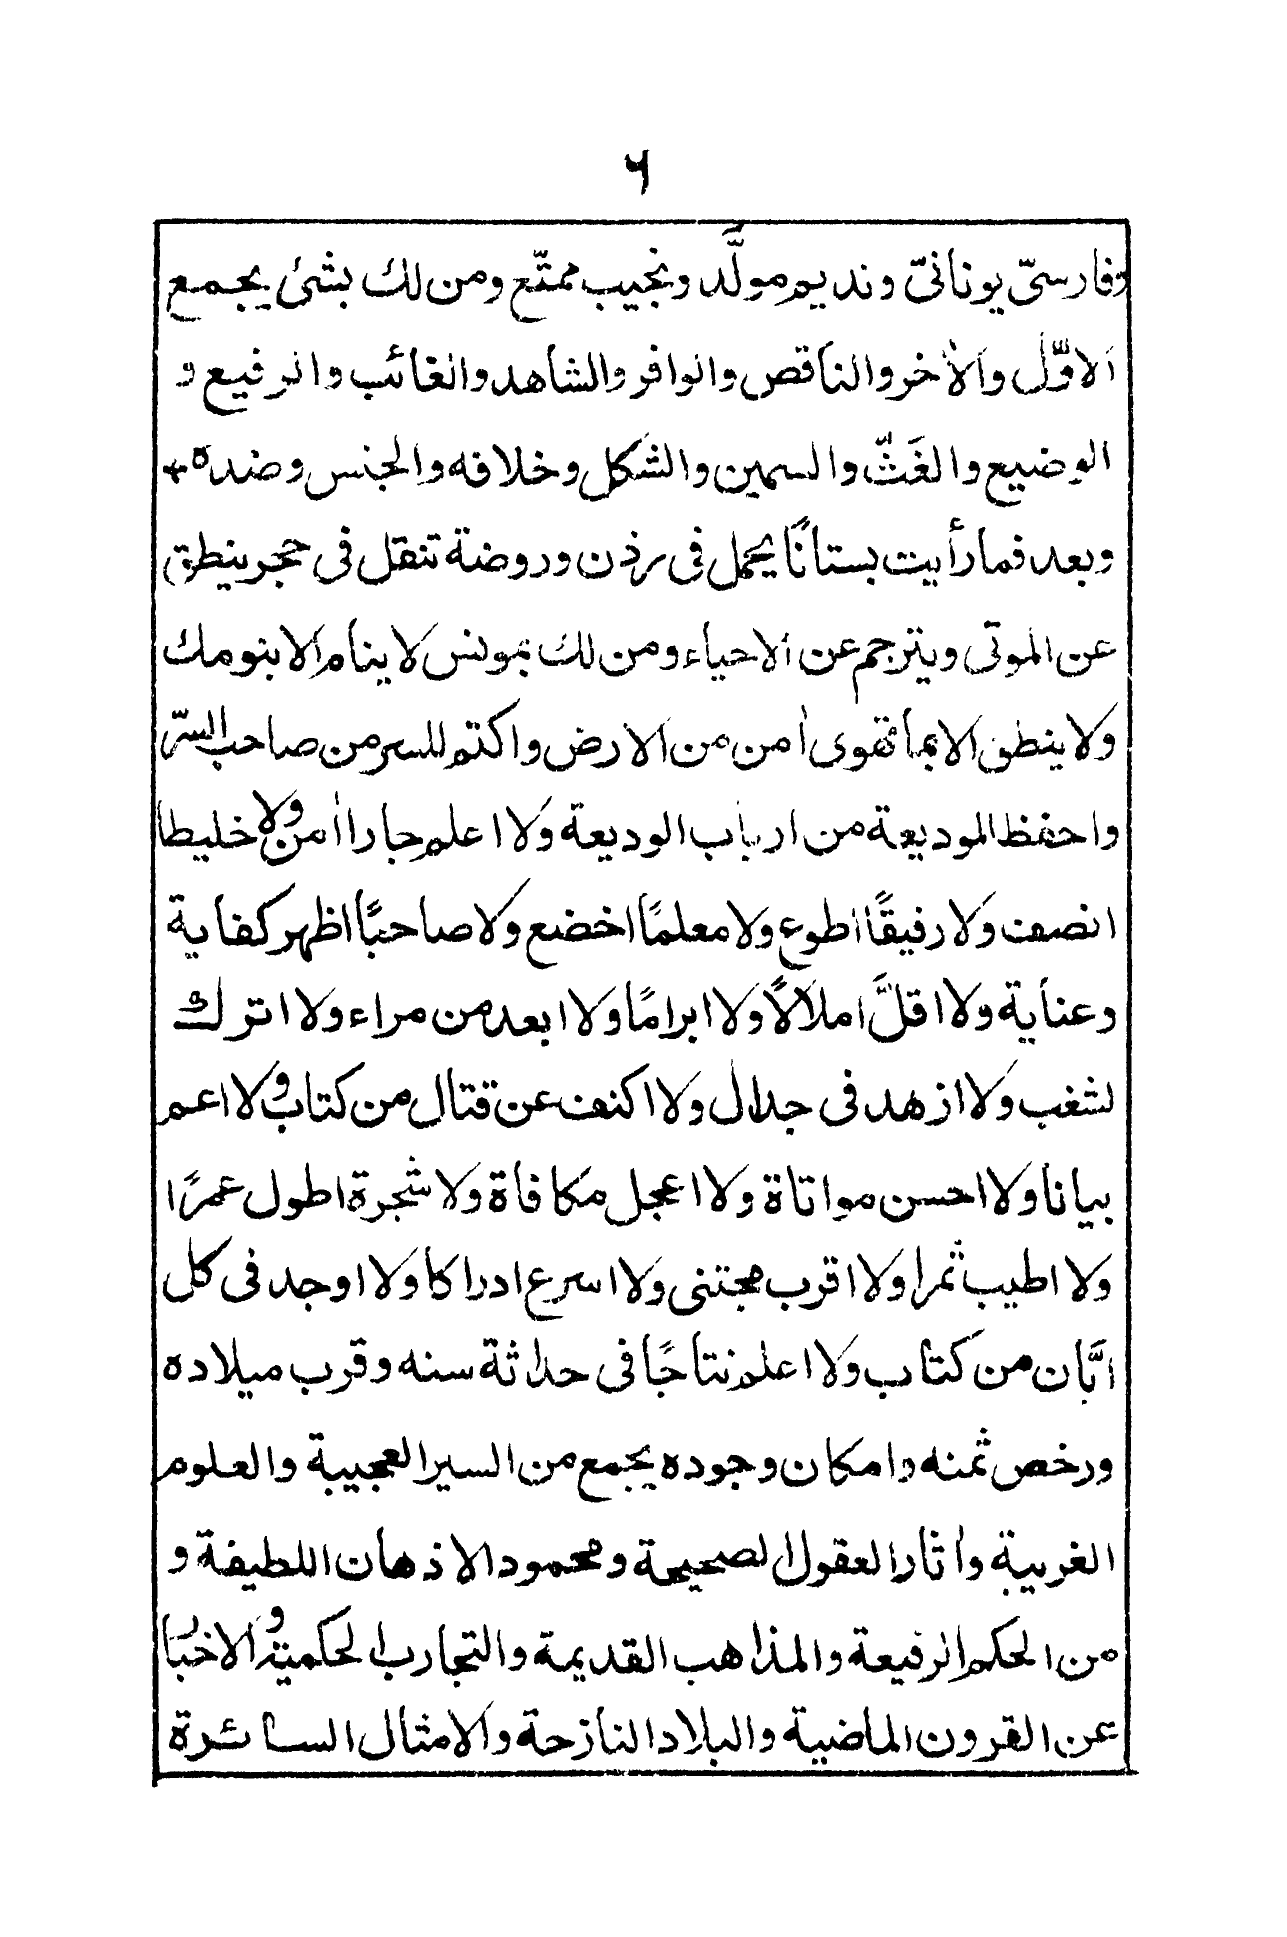 ٦
وفارسىّ يونانىّ ونديم مولَّد ونجيب ممتّع ومن لك بشئ يجمع
الاوّل والاخر والناقص والوافر والشاهد والغائب والرفيع و
الوضيع والغَثّ والسمين والشكل وخلافه والجنس وضده +
وبعد فما رأيت بستانًا يحمل فى ردن وروضة تنقل فى حجر ينطق
عن الموتى ويترجم عن الاحياء ومن لك بمونس لا ينام الا بنومك
ولا ينطق الا بما تهوى اٰمن من الارض واكتم للسر من صاحب السرّ
واحفظ للوديعة من ارباب الوديعة ولا اعلم جارا اٰمن ولا خليطا
انصف ولا رفيقًا اطوع ولا معلمًا اخضع ولا صاحبًا اظهر كفاية
وعناية ولا اقلَّ املالًا ولا ابرامًا ولا ابعد من مراء ولا اترك
لشغب ولا ازهد فى جدال ولا اكف عن قتال من كتاب ولا اعم
بيانا ولا احسن مواتاة ولا اعجل مكافاة ولا شجرة اطول عمرًا
ولا اطيب ثمرا ولا اقرب مجتنى ولا اسرع ادراكا ولا اوجد فى كل
ابَّان من كتاب ولا اعلم نتاجًا فى حداثة سنه وقرب ميلاده
ورخص ثمنه وامكان وجوده يجمع من السير العجيبة والعلوم
الغريبة واٰثار العقول الصحيحة ومحمود الاذهان اللطيفة و
من الحكم الرفيعة والمذاهب القديمة والتجارب الحكمية والاخبار
عن القرون الماضية والبلاد النازحة والامثال السائرة